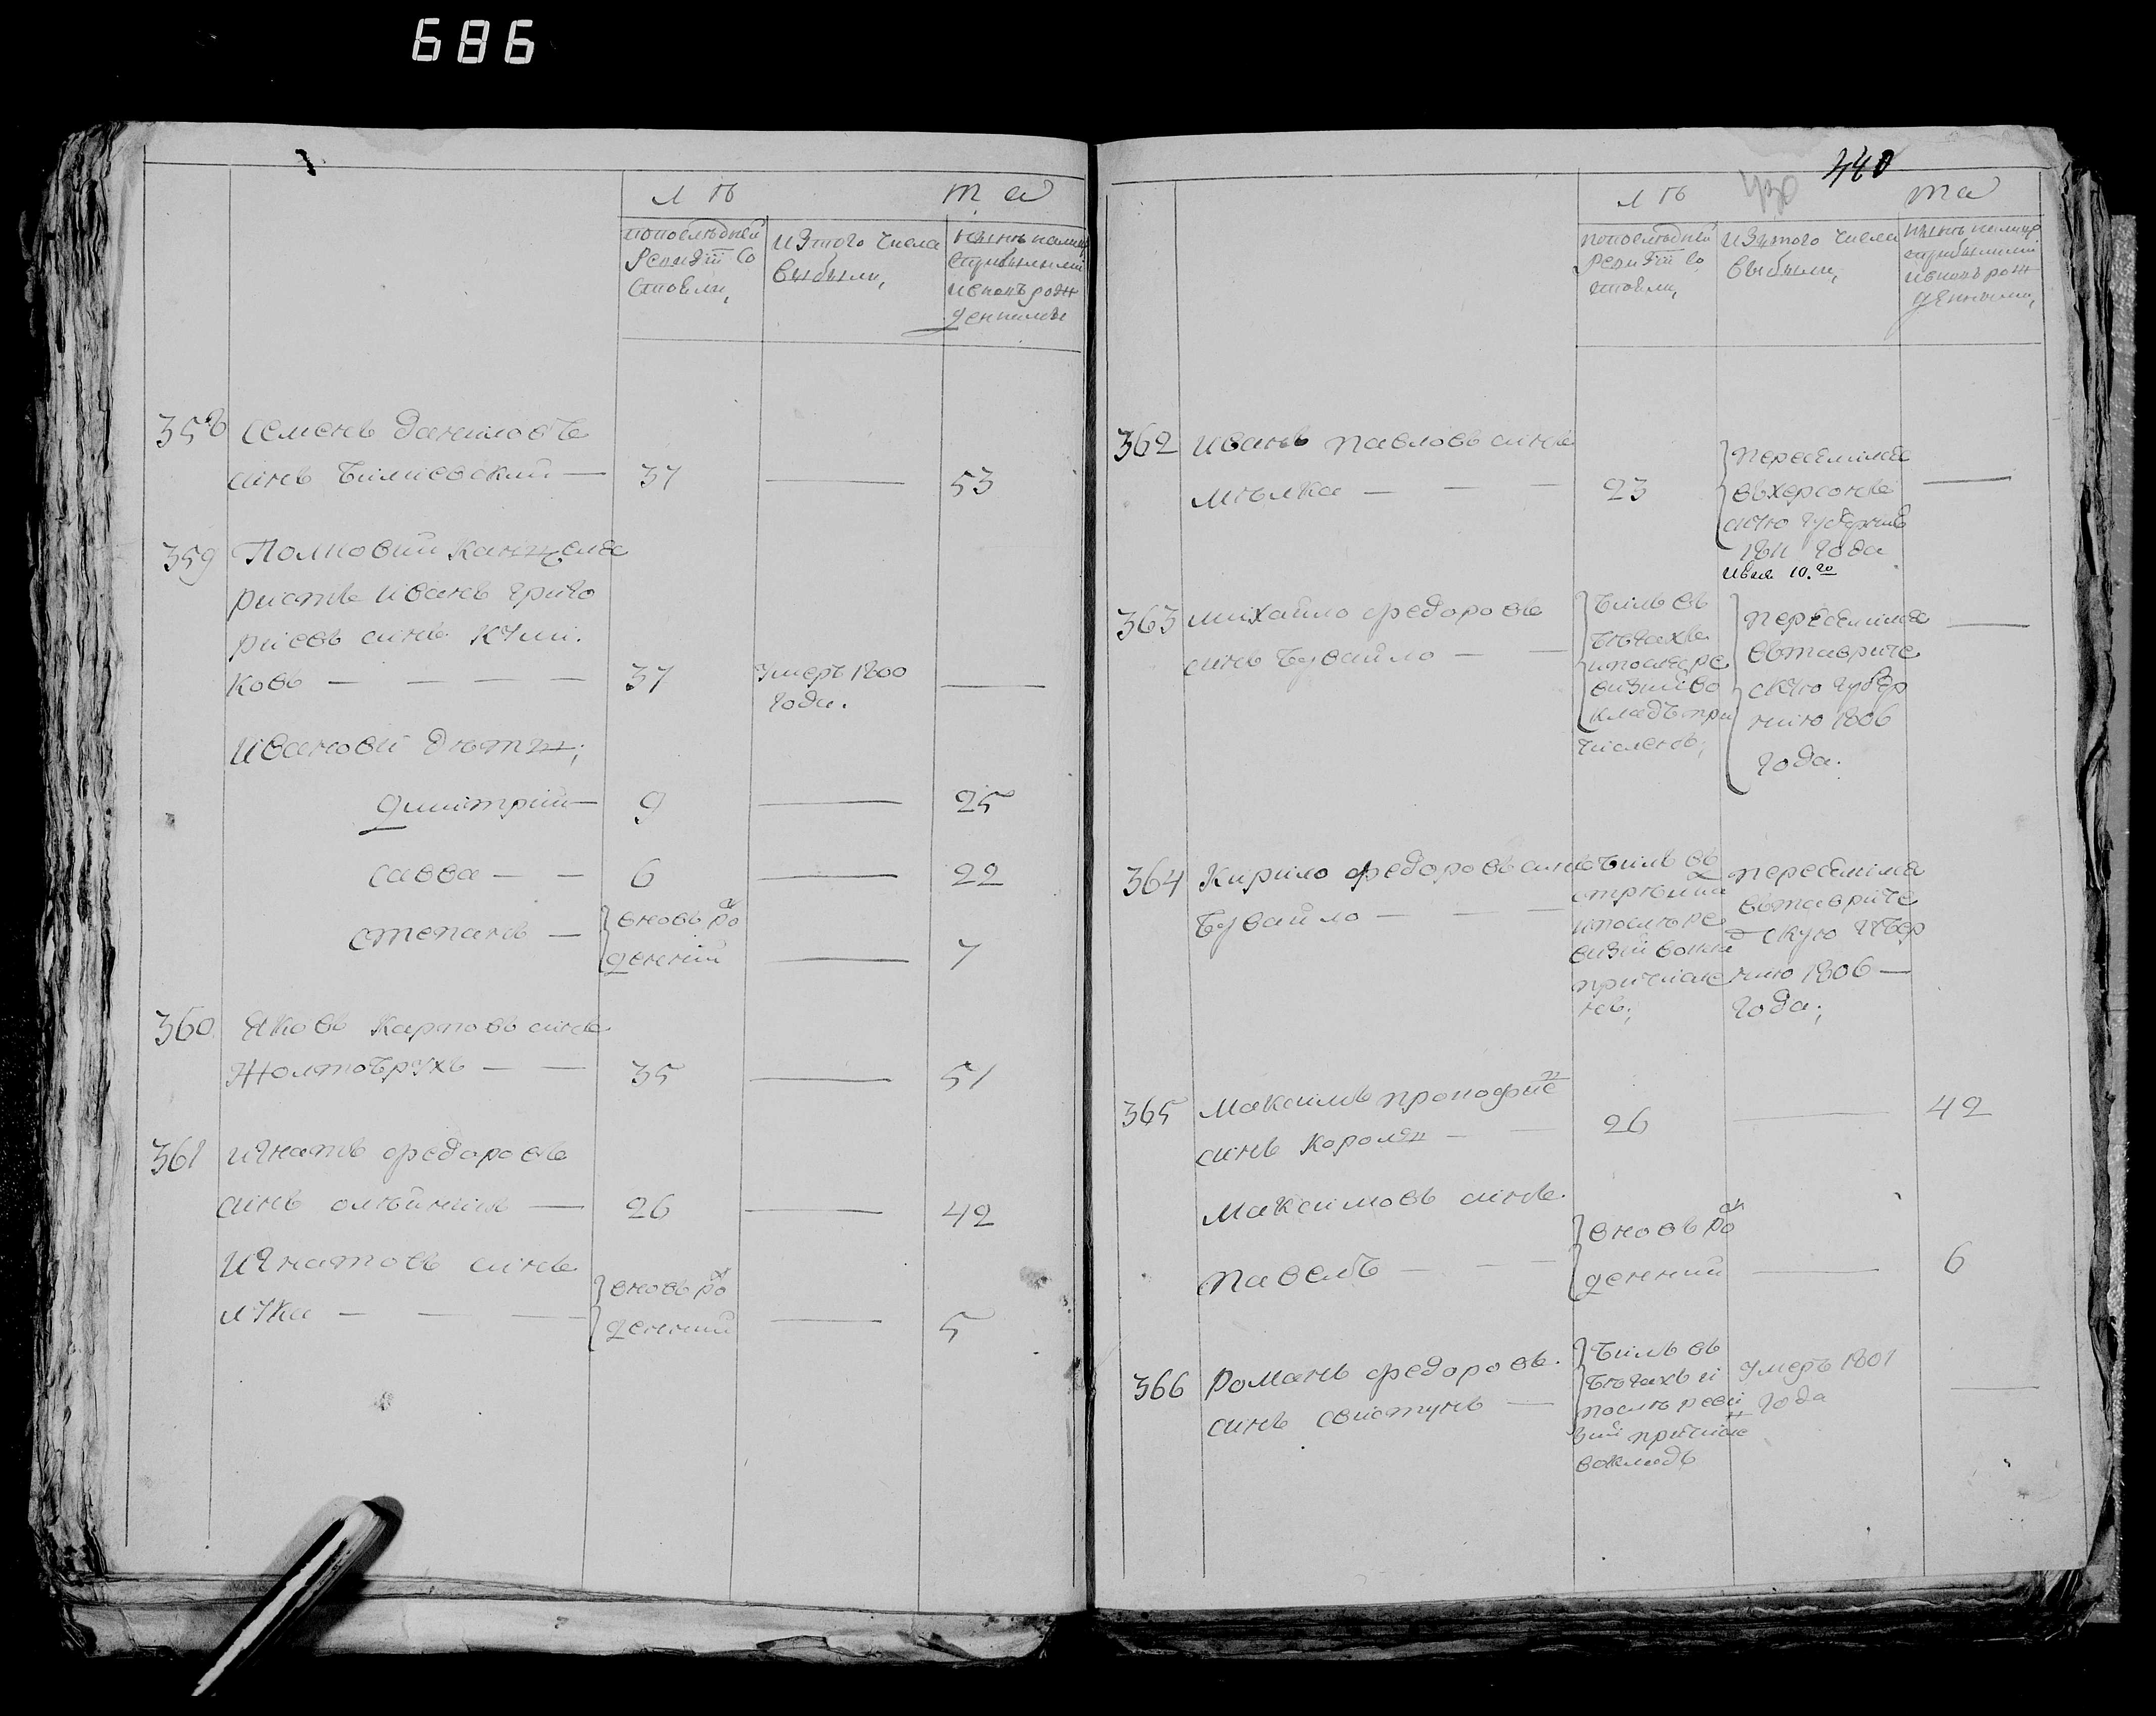 686
лѣ та
попослѣдней
Ревизіи Со
стояли,
изтого числа
выбыли,
нынѣ налицо
сприбылыми
ивновъ рож
денными
358 Семенъ Даниловъ
синъ Билиевский — 37 — 53
359 Полковий Канцеля
ристъ Иванъ Григо
риевъ синъ Кули.
ковъ — — — — 37
Умеръ 1800
года. —
Ивановы дѣти;
Дмитрий — 9 — 25
Савва — — 6 — 22
Степанъ —
вновь рож
денний — 7
360 Яковъ Карповъ синъ
Жолтобрухъ — — 35 — 51
361 Игнатъ Федоровъ
синъ олѣйникъ — 26 — 42
Игнатовъ синъ
лука — — —
вновь рож
денний — 5
440
лѣ та
попослѣдней
Ревизіи Со
стояли,
изтого числа
выбыли,
нынѣ налицо
сприбылыми
ивновъ рож
денными,
362 Иванъ Павловъ синъ
Мѣлка — — — 23
Переселился
въ херсонс
кую губернию
1811 года
Июля 10.го
—
363 Михайло Федоровъ
синъ Бувайло — —
Билъ въ
бѣгахъ
ипослѣ ре
визии во
кладъ при
численъ;
Переселился
въ тавриче
скую губер
нию 1806
года.
—
364 Кирило Федоровъ синъ
Бувайло — — —
Билъ въ
ипослѣ ре
визий вокла
причисле
нъ;
переселился
въ тавриче
скую губер
нию 1806 —
года;
365 Максимъ прокофие
синъ Король — — 26 — 42
Максимовъ синъ
Павелъ — — —
вновь рож
денний — 6
366 Романъ Федоровъ
синъ Свистунъ —
Билъ въ
бѣгахъ и
послѣ реви
зий причисле
вокладъ
Умеръ 1801
года
—